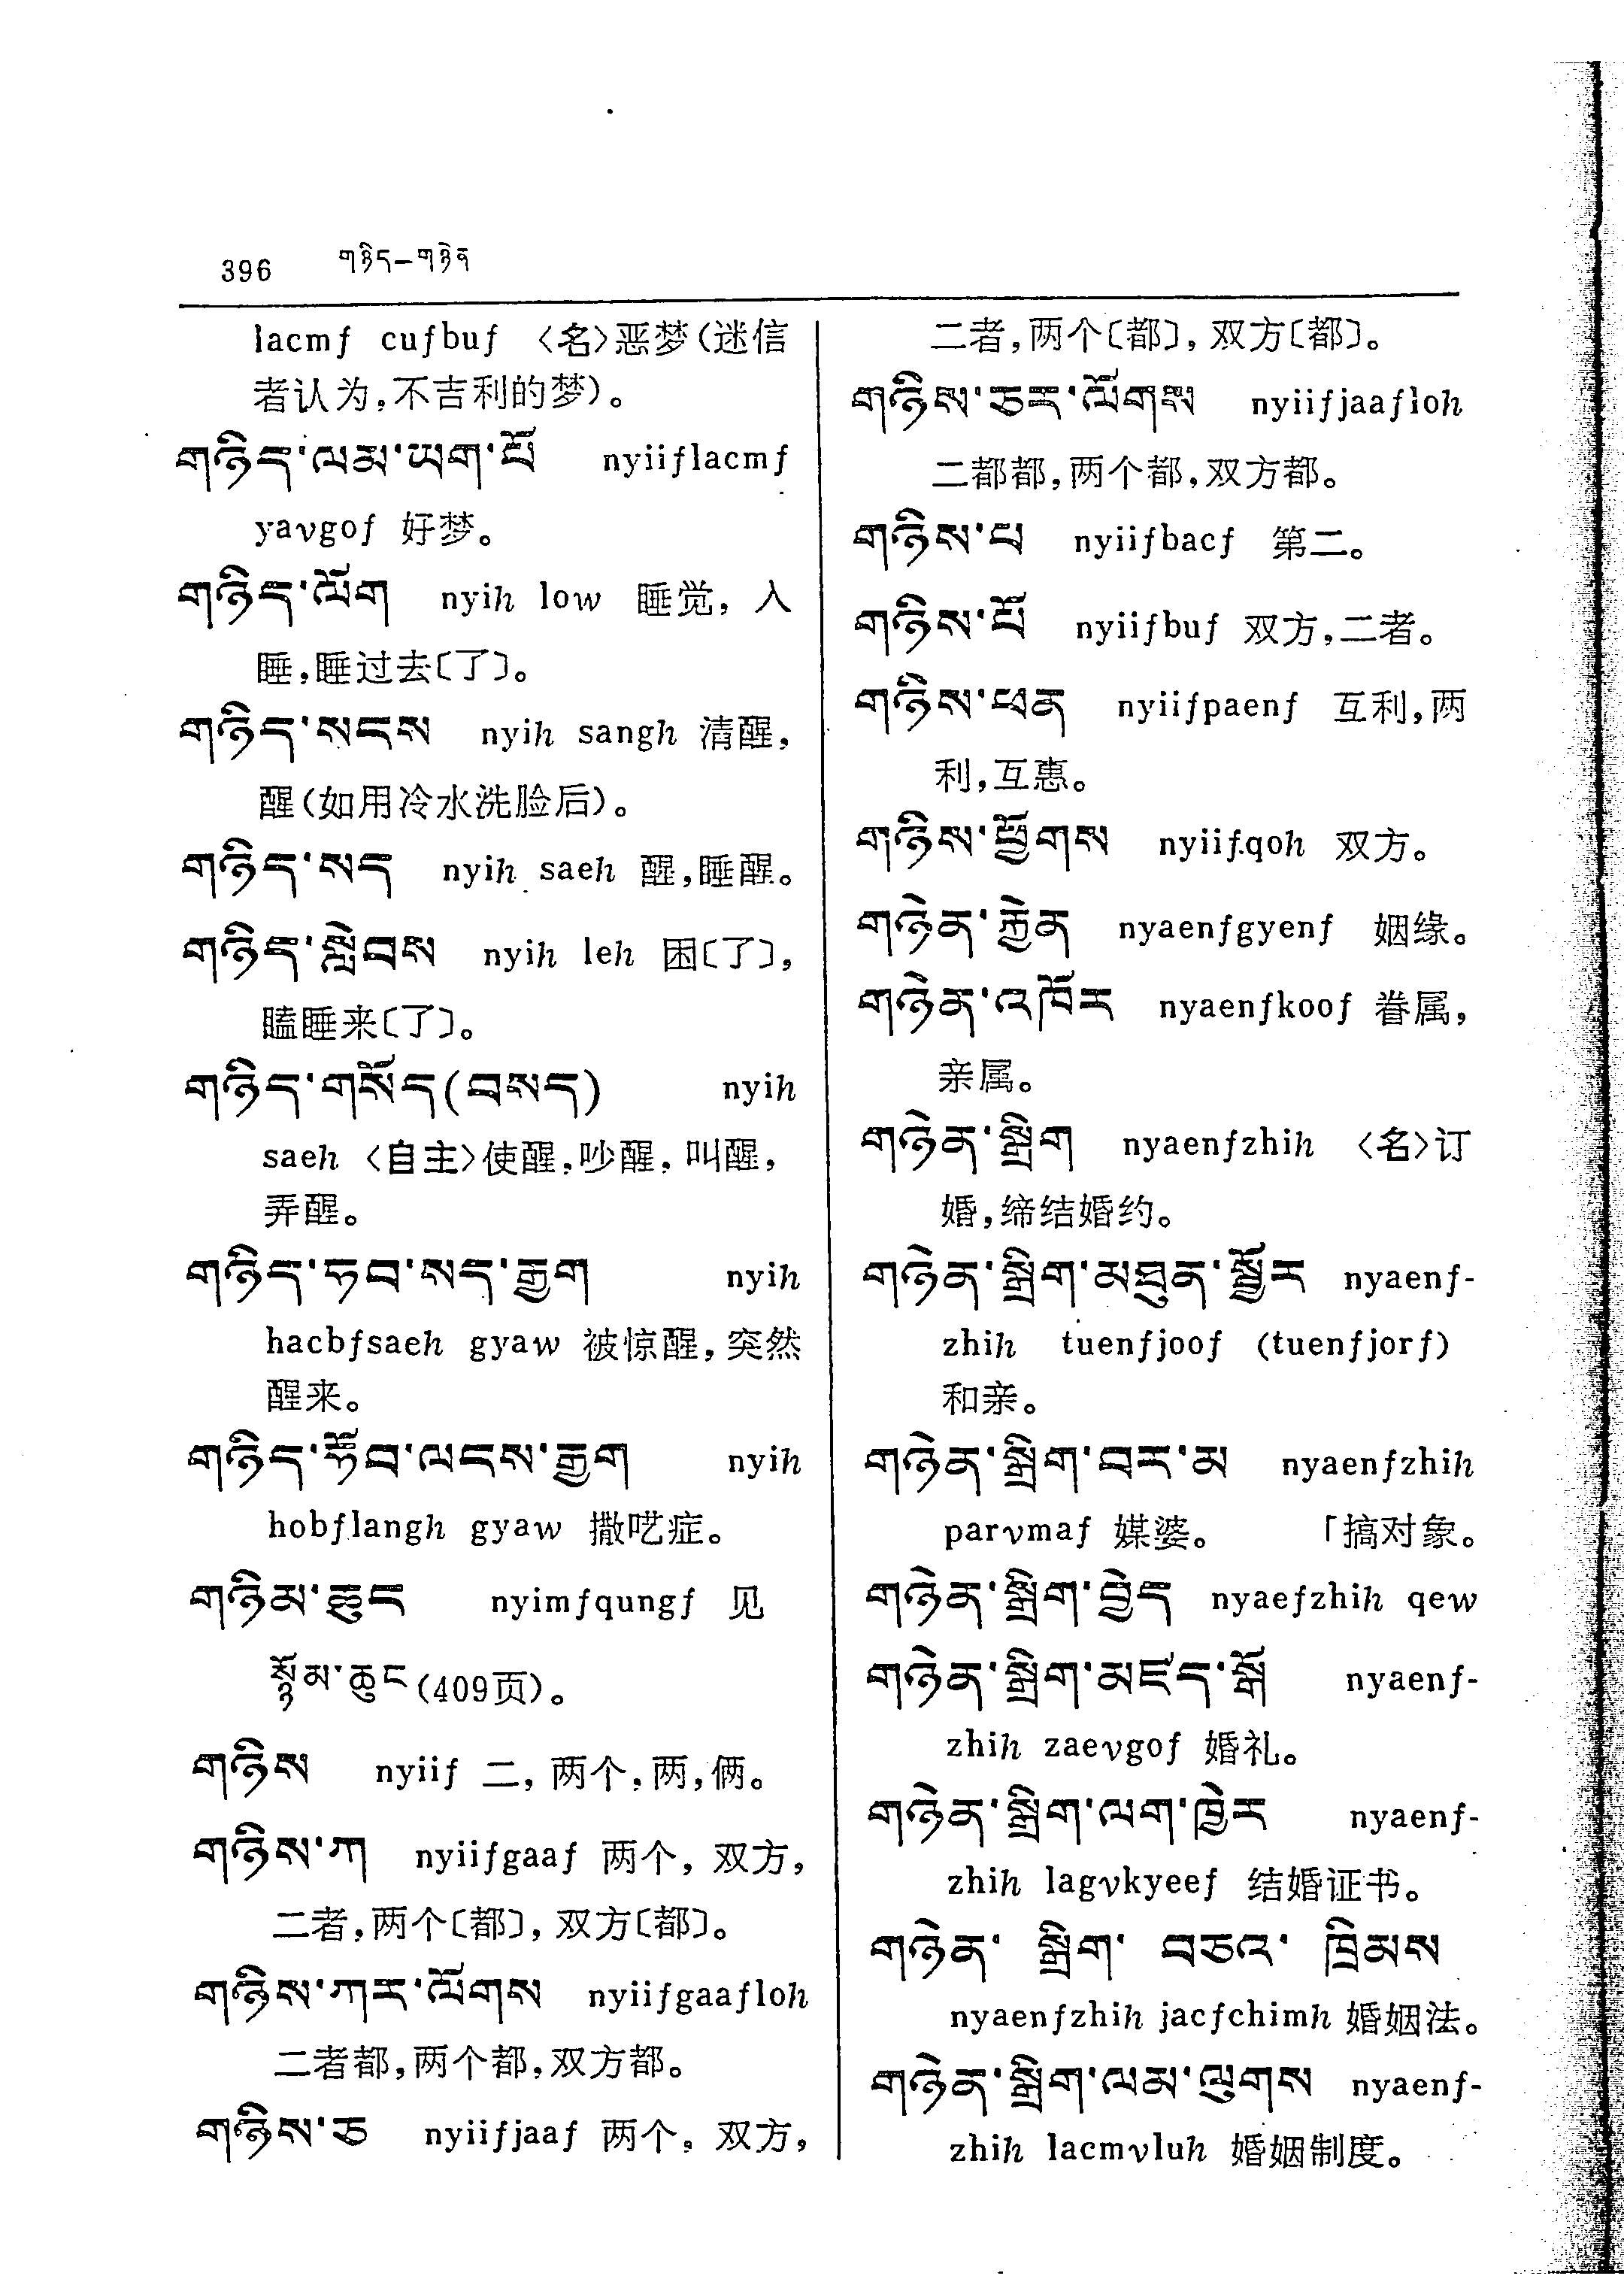 396 གཉིད—གཉེན
lacmf cufbuf 〈名〉恶梦(迷信
者认为,不吉利的梦)。
གཉིད་ལམ་ཡག་པོ nyiiflacmf
yavgof 好梦。
གཉིད་ལོག nyih low 睡觉, 入
睡,睡过去〔了〕。
གཉིད་སངས nyih sangh 清醒,
醒(如用冷水洗脸后)。
གཉིད་སད nyih saeh 醒,睡醒。
གཉིད་སླེབས nyih leh 困〔了〕,
瞌睡来〔了〕。
གཉིད་གསོད(བསད) nyih
saeh 〈自主〉使醒,吵醒, 叫醒,
弄醒。
གཉིད་ཧབ་སད་རྒྱག nyih
hacbfsaeh gyaw 被惊醒, 突然
醒来。
གཉིད་ཧོབ་ལངས་རྒྱག nyih
hobflangh gyaw 撒呓症。
གཉིམ་ཆུང nyimfqungf 见
སྙོམ་ཆུང(409页)。
གཉིས nyiif 二, 两个,两,俩。
གཉིས་ཀ nyiifgaaf 两个, 双方,
二者,两个〔都〕, 双方〔都〕。
གཉིས་ཀར་ལོགས nyiifgaafloh
二者都,两个都,双方都。
གཉིས་ཅ nyiifjaaf 两个, 双方,
二者,两个〔都〕, 双方〔都〕。
གཉིས་ཅར་ལོགས nyiifjaafloh
二都都,两个都,双方都。
གཉིས་པ nyiifbacf 第二。
གཉིས་པོ nyiifbuf 双方,二者。
གཉིས་ཕན nyiifpaenf 互利,两
利,互惠。
གཉིས་ཕྱོགས nyiifqoh 双方。
གཉེན་རྐྱེན nyaenfgyenf 姻缘。
གཉེན་འཁོར nyaenfkoof 眷属,
亲属。
གཉེན་སྒྲིག nyaenfzhih 〈名〉订
婚,缔结婚约。
གཉེན་སྒྲིག་མཐུན་སྦྱོར nyaenf-
zhih tuenfjoof (tuenfjorf)
和亲。
གཉེན་སྒྲིག་བར་མ nyaenfzhih
parvmaf 媒婆。 「搞对象。
གཉེན་སྒྲིག་བྱེད nyaefzhih qew
གཉེན་སྒྲིག་མཛད་སྒོ nyaenf-
zhih zaevgof 婚礼。
གཉེན་སྒྲིག་ལག་ཁྱེར nyaenf-
zhih lagvkyeef 结婚证书。
གཉེན་ སྒྲིག་ བཅའ་ ཁྲིམས
nyaenfzhih jacfchimh 婚姻法。
གཉེན་སྒྲིག་ལམ་ལུགས nyaenf-
zhih lacmvluh 婚姻制度。